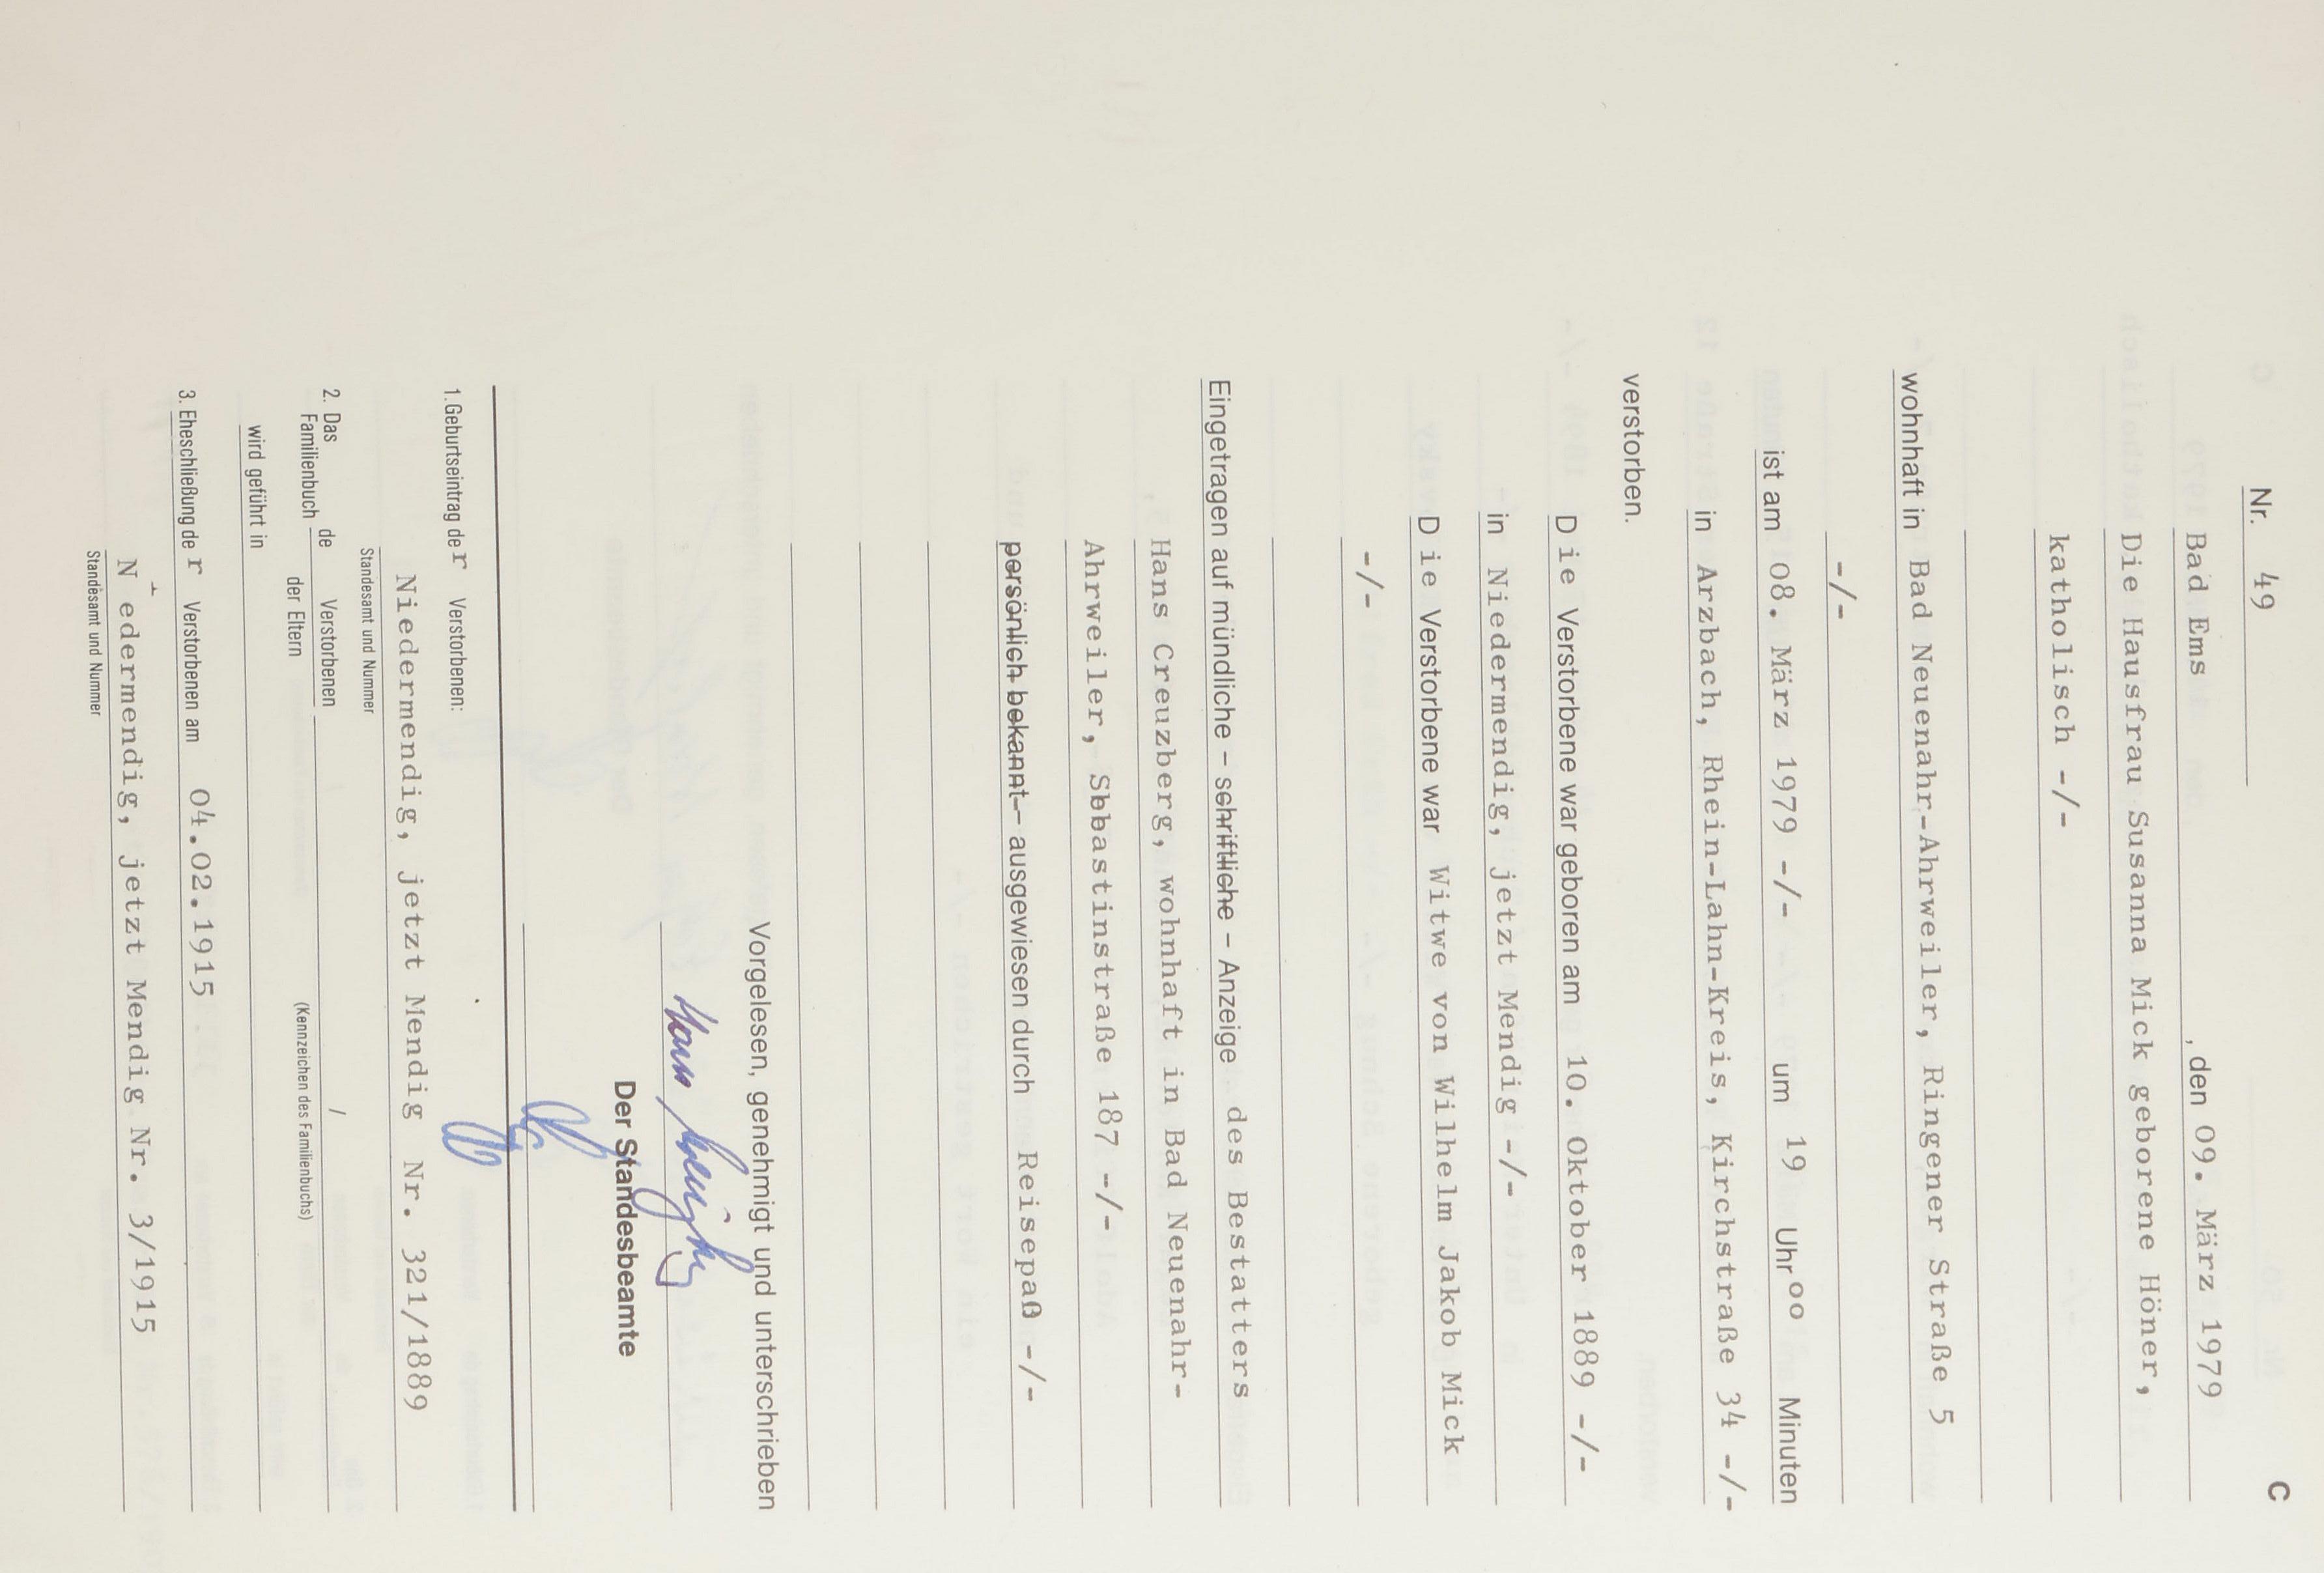 C
Nr. 49
Bad Ems , den 09. März 1979
Die Hausfrau Susanna Mick geborene Höner,
katholisch -/-
wohnhaft in Bad Neuenahr-Ahrweiler, Ringener Straße 5
-/-
ist am 08. März 1979 -/- um 19 Uhr 00 Minuten
in Arzbach, Rhein-Lahn-Kreis, Kirchstraße 34 -/-
verstorben.
Die Verstorbene war geboren am 10. Oktober 1889 -/-
in Niedermendig, jetzt Mendig -/-
Die Verstorbene war Witwe von Wilhelm Jakob Mick
-/-
Eingetragen auf mündliche – schriftliche – Anzeige des Bestatters
Hans Creuzberg, wohnhaft in Bad Neuenahr-
Ahrweiler, Sbbastinstraße 187 -/-
persönlich bekannt – ausgewiesen durch Reisepaß -/-
Vorgelesen, genehmigt und unterschrieben
Hans Creuzberg
Der Standesbeamte
1. Geburtseintrag der Verstorbenen:
Niedermendig, jetzt Mendig Nr. 321/1889
Standesamt und Nummer
2. Das Familienbuch de Verstorbenen /
der Eltern (Kennzeichen des Familienbuchs)
wird geführt in
3. Eheschließung der Verstorbenen am 04.02.1915
Niedermendig, jetzt Mendig Nr. 3/1915
Standesamt und Nummer